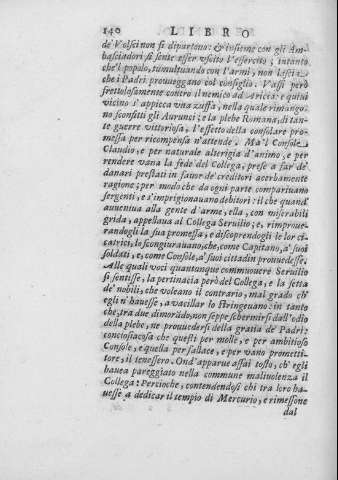 140 LIBRO
de' Volsci non si dipartono: & insieme con gli Am-
basciadori si sente esser vscito l'essercito; intanto
che'l popolo, tumultuando con l'armi, non lascia
che i Padri proueggano col consiglio. Vassi però
frettolosamente contro il nemico ad Aricca: e quiui
vicino s'appicca vna zuffa, nella quale rimango-
no sconfitti gli Aurunci; e la plebe Romana, di tan-
te guerre vittoriosa, l'effetto della consolare pro-
messa per ricompensa n'attende. Ma'l Console
Claudio, e per naturale alterigia d'animo, e per
rendere vana la fede del Collega, prese a far de'
danari prestati in fauor de' creditori acerbamente
ragione; per modo che da ogni parte compariuano
sergenti, e s'imprigionauano debitori: il che quand'
auueniua alla gente d'arme, ella, con miserabili
grida, appellaua al Collega Seruilio; e, rimproue-
randogli la sua promessa, e discoprendogli le lor ci-
catrici, lo scongiurauano, che, come Capitano, a' suoi
soldati, e, come Consolo, a' suoi cittadin prouuedesse.
Alle quali voci quantunque commuouere Seruilio
si sentisse, la pertinacia però del Collega, e la setta
de' nobili, che voleano il contrario, mal grado ch'
egli n'hauesse, a vacillar lo stringeuano: in tanto
che, tra due dimorādo, non seppe schermirsi dall'odio
della plebe, ne prouuedersi della gratia de' Padri:
conciosiacosa che questi per molle, e per ambitioso
Console, e quella per fallace, e per vano prometti-
tore, il tenessero. Ond'apparue assai tosto, ch'egli
hauea pareggiato nella commune maliuolenza il
Collega: Percioche, contendendosi chi tra loro ha-
uesse a dedicar il tempio di Mercurio, e rimessone
dal